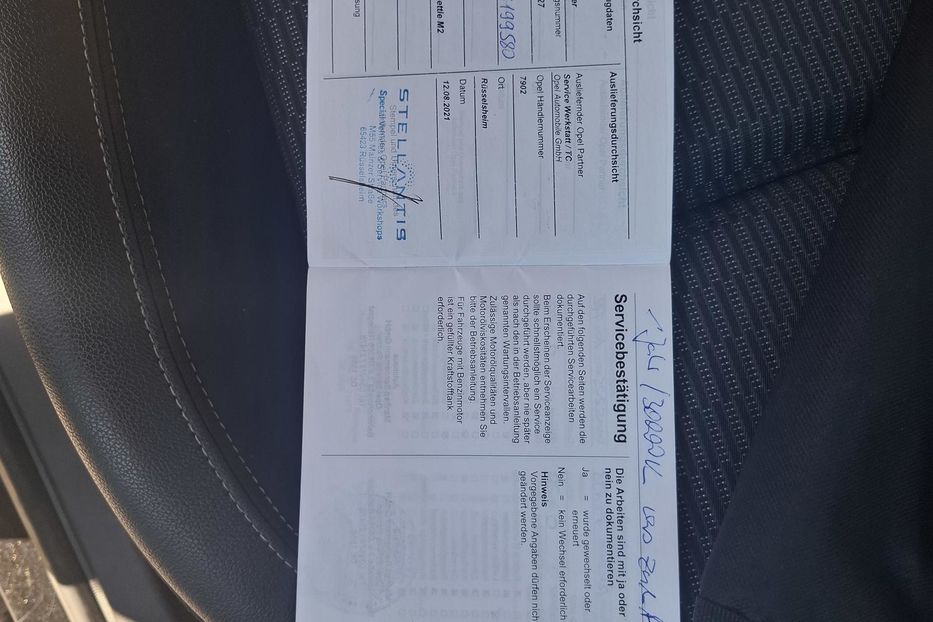 rchsicht
gdaten
er
gsnummer
27
199580
ettle M2
sung
Auslieferungsdurchsicht
Ausliefernder Opel Partner
Service Werkstatt / TC
Opel Automobile GmbH
Opel Händlernummer
7902
Ort
Rüsselsheim
Datum
12.08.2021
STELLANTIS
M55 Mainzer Straße
65423 Rüsselsheim
1 Jahr / 30000K
Servicebestätigung
Auf den folgenden Seiten werden die
durchgeführten Servicearbeiten
dokumentiert.
Beim Erscheinen der Serviceanzeige
sollte schnellstmöglich ein Service
durchgeführt werden, aber nie später
als nach den in der Betriebsanleitung
genannten Wartungsintervallen.
Zulässige Motorölqualitäten und
Motorölviskositäten entnehmen Sie
bitte der Betriebsanleitung.
Für Fahrzeuge mit Benzinmotor
ist ein gefüllter Kraftstofftank
erforderlich.
Die Arbeiten sind mit ja oder
nein zu dokumentieren
Ja = wurde gewechselt oder
erneuert
Nein = kein Wechsel erforderlich
Hinweis
Vorgegebene Angaben dürfen nich
geändert werden.